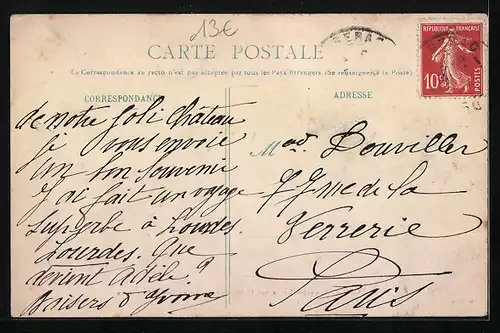 13€
CARTE POSTALE
La Correspondance au recto n'est pas acceptée par tous les Pays Etrangers. (Se renseigner à la Poste)
CORRESPONDANCE
ADRESSE
REPUBLIQUE FRANÇAISE
10c
POSTES
de notre joli château
je vous envoie
un bon souvenir
J'ai fait un voyage
superbe à Lourdes.
Lourdes. Que
devient Adèle?
Baisers d'Yvonne
Mad. Douviller
rue de la
Verrerie
Paris